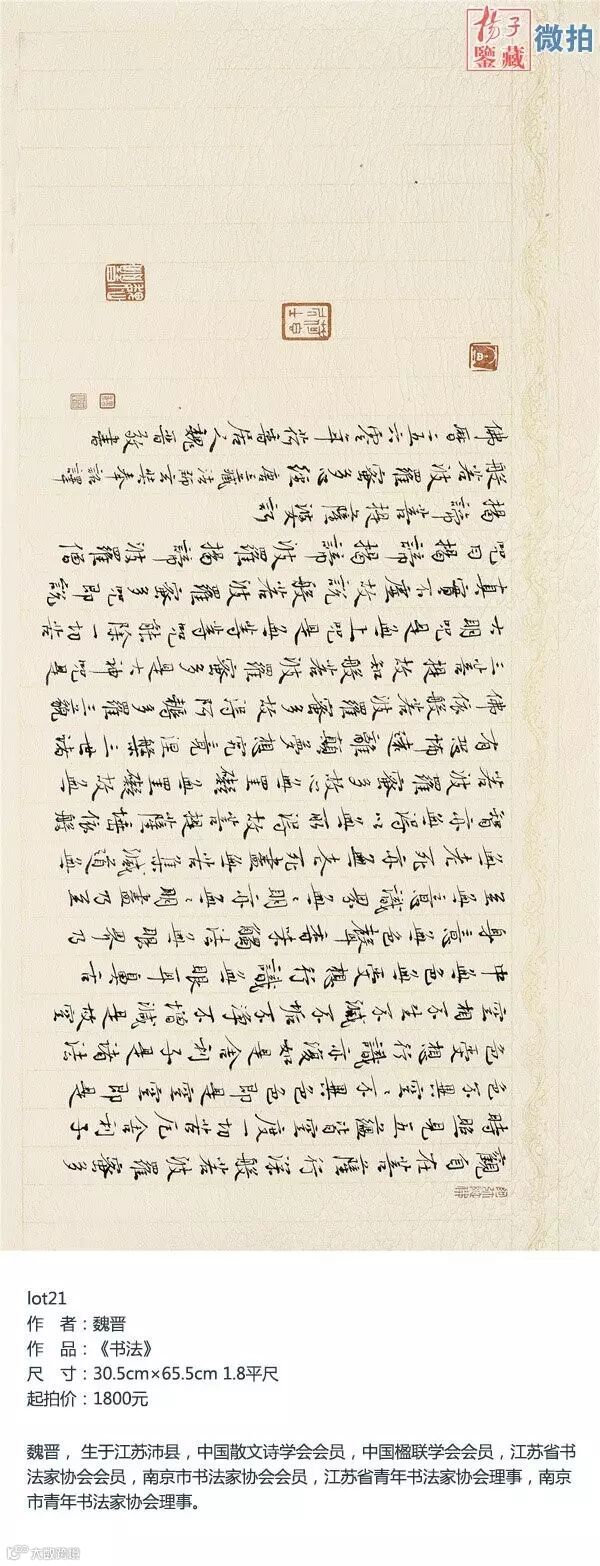 杨子
鑒藏
微拍
觀自在菩薩行深般若波羅蜜多
時照見五蘊皆空度一切苦厄舍利子
色不異空空不異色色即是空空即是
色受想行識亦復如是舍利子是諸法
空相不生不滅不垢不淨不增不減是故空
中無色無受想行識無眼耳鼻舌
身意無色聲香味觸法無眼界乃
至無意識界無無明亦無無明盡乃至
無老死亦無老死盡無苦集滅道無
智亦無得以無所得故菩提薩埵依般
若波羅蜜多故心無罣礙無罣礙故無
有恐怖遠離顛夢想究竟涅槃三世諸
佛依般若波羅蜜多故得阿耨多羅三藐
三菩提故知般若波羅蜜多是大神咒是
大明咒是無上咒是無等等咒能除一切苦
真實不虛故說般若波羅蜜多咒即說
咒曰揭諦揭諦波羅揭諦波羅僧
揭諦菩提薩婆訶
般若波羅蜜多心經 唐三藏法師玄奘奉詔譯
佛曆二五六零年 居人魏晉敬書
lot21
作 者：魏晋
作 品：《书法》
尺 寸：30.5cm×65.5cm 1.8平尺
起拍价：1800元
魏晋，生于江苏沛县，中国散文诗学会会员，中国楹联学会会员，江苏省书
法家协会会员，南京市书法家协会会员，江苏省青年书法家协会理事，南京
市青年书法家协会理事。
大数跨境